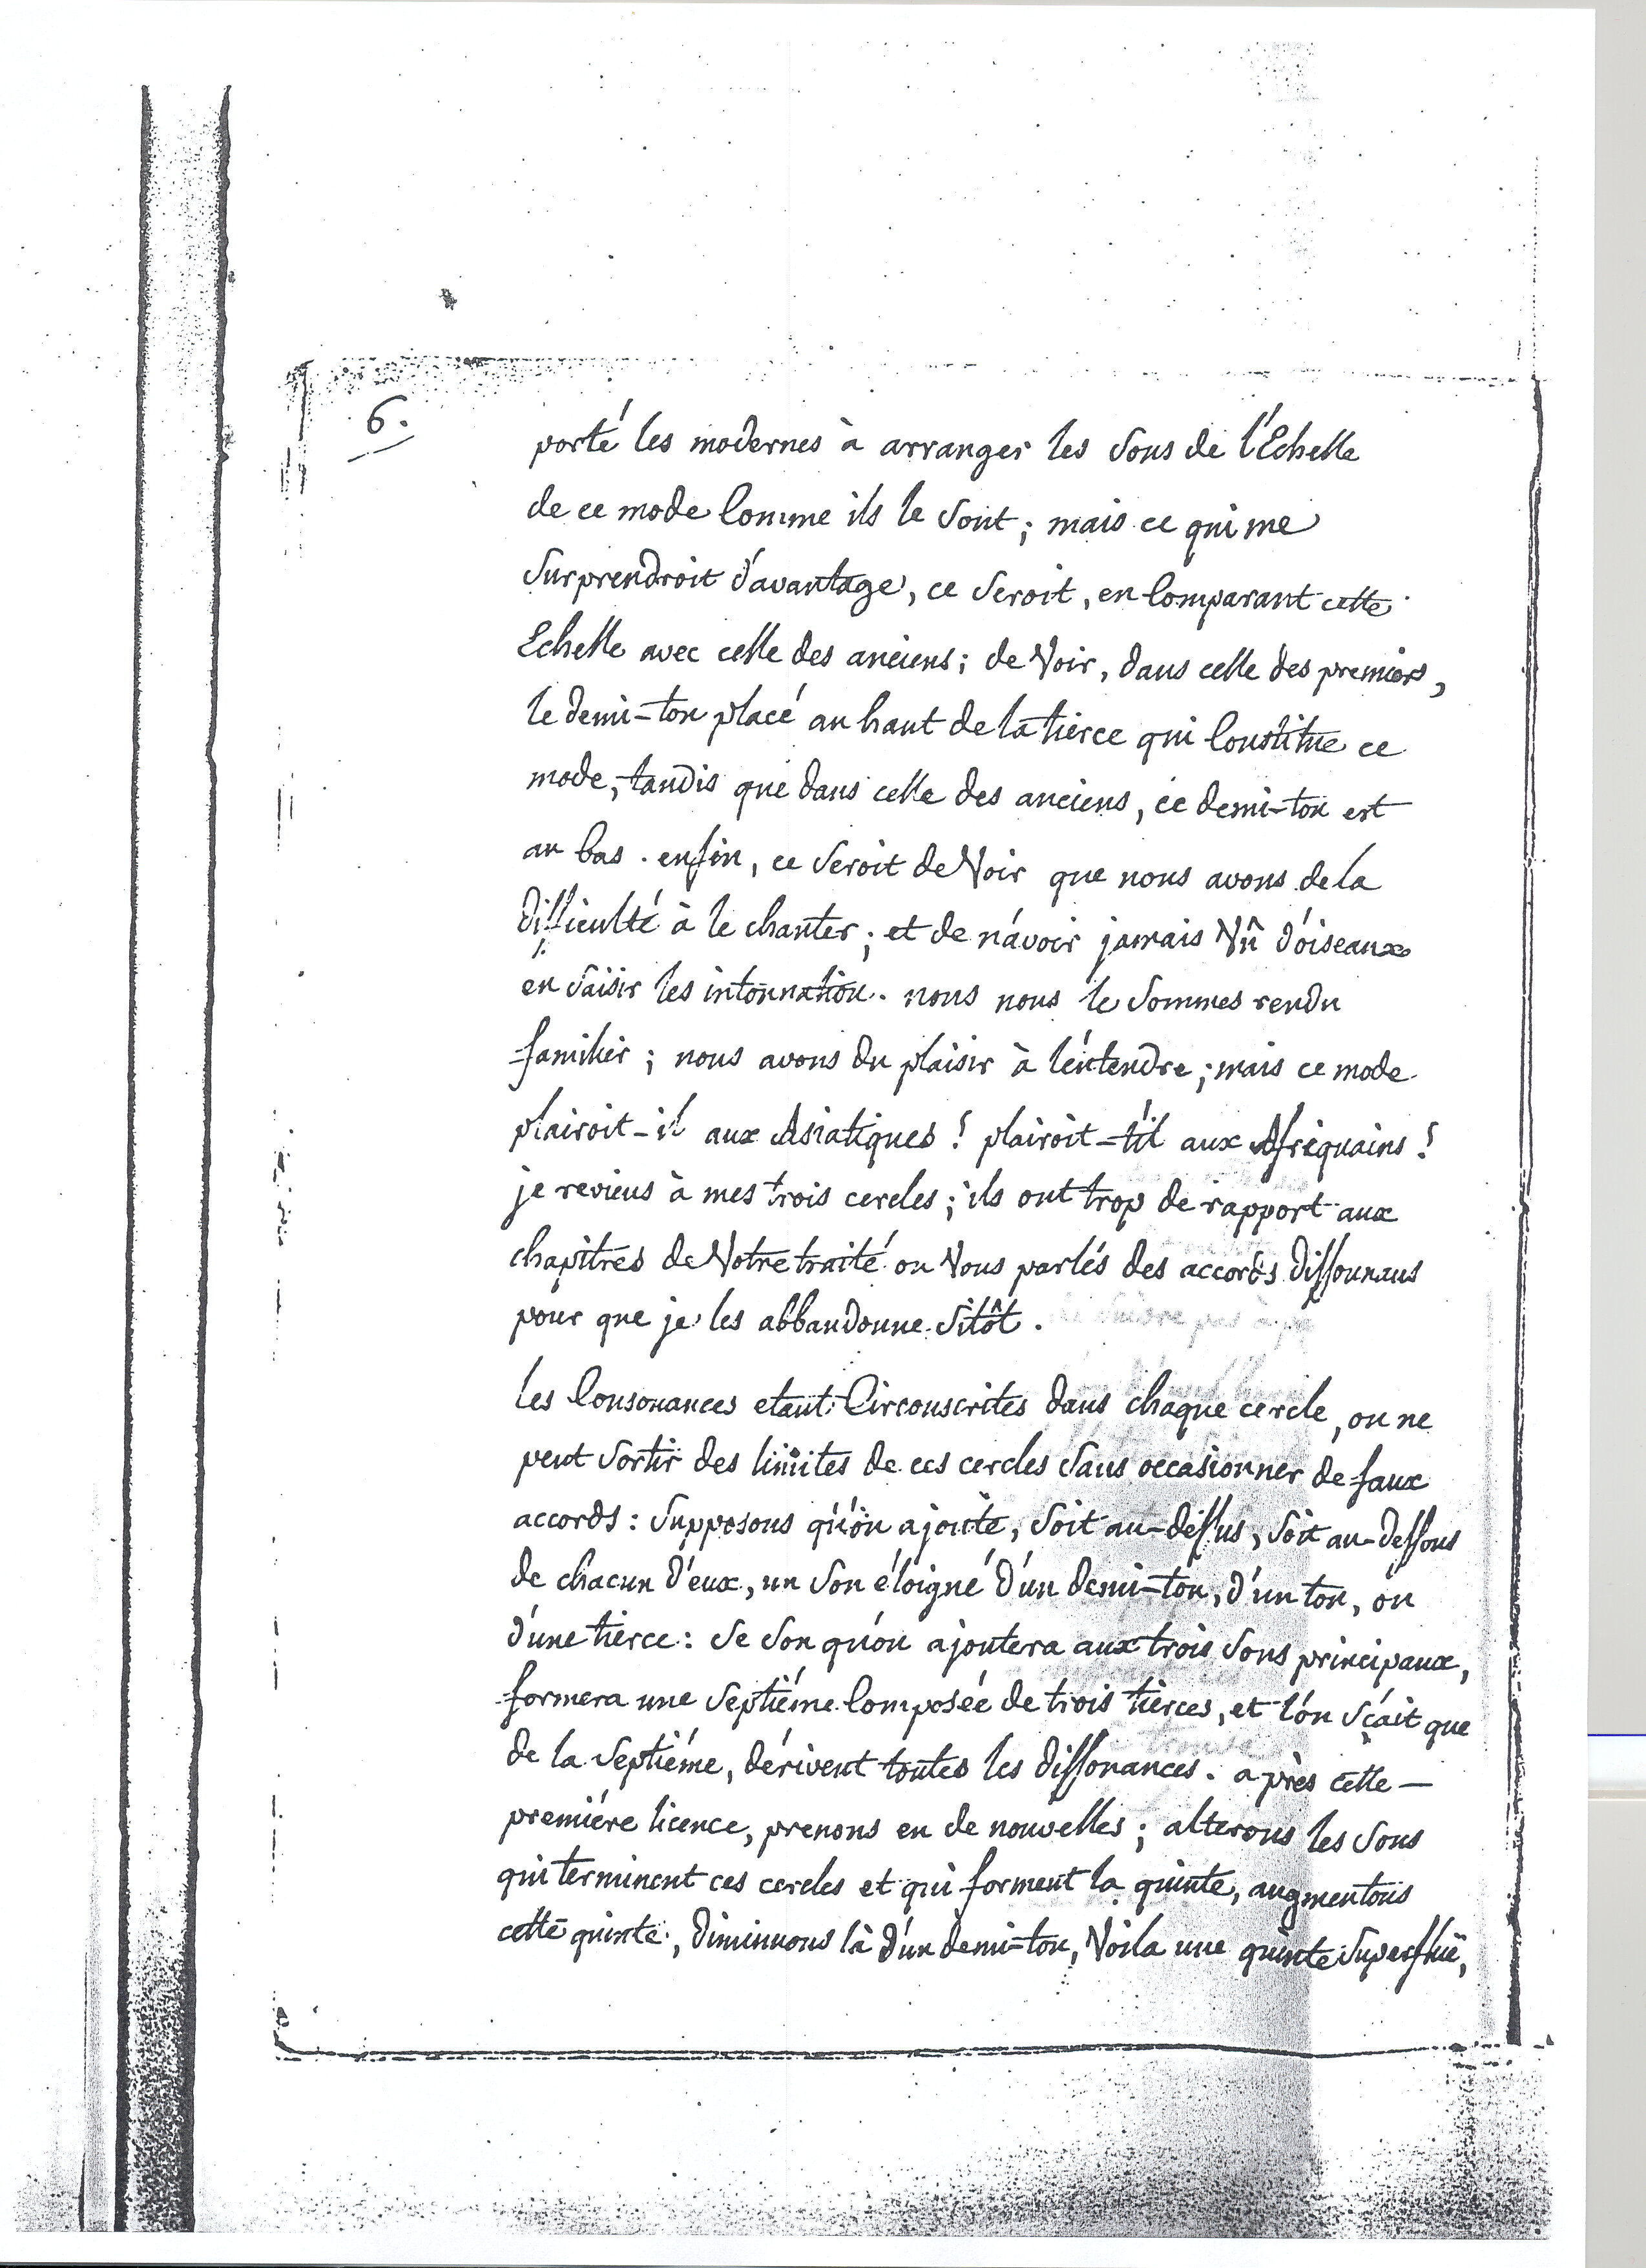 6.
porté les modernes à arranger les sons de l'Echelle
de ce mode comme ils le sont ; mais ce qui me
surprendroit d'avantage, ce seroit, en comparant cette
Echelle avec celle des anciens ; de Voir, dans celle des premiers,
le demi-ton placé au haut de la tierce qui constitue ce
mode, tandis que dans celle des anciens, ce demi-ton est
au bas . enfin, ce seroit de Voir que nous avons de la
difficulté à le chanter ; et de n'avoir jamais Vû d'oiseaux
en saisir les intonnation . nous nous le sommes rendu
familier ; nous avons du plaisir à l'entendre ; mais ce mode
plairoit-il aux Asiatiques ! plairoit-t'il aux Afriquains !
je reviens à mes trois cercles ; ils ont trop de rapport aux
chapitres de Votre traité ou Vous parlés des accords dissonnans
pour que je les abbandonne sitôt .
les Consonances etant Circonscrites dans chaque cercle, on ne
peut sortir des limites de ces cercles sans occasionner de faux
accords : supposons qu'on ajoute, soit au-dessus, soit au-dessous
de chacun d'eux, un son éloigné d'un demi-ton, d'un ton, ou
d'une tierce : se son qu'on ajoutera aux trois sons principaux,
formera une septiéme composée de trois tierces, et l'on sçait que
de la septiéme, dérivent toutes les dissonances . après cette —
premiére licence, prenons en de nouvelles ; alterons les sons
qui terminent ces cercles et qui forment la quinte, augmentons
cette quinte, diminuons là d'un demi-ton, Voila une quinte superfluë,